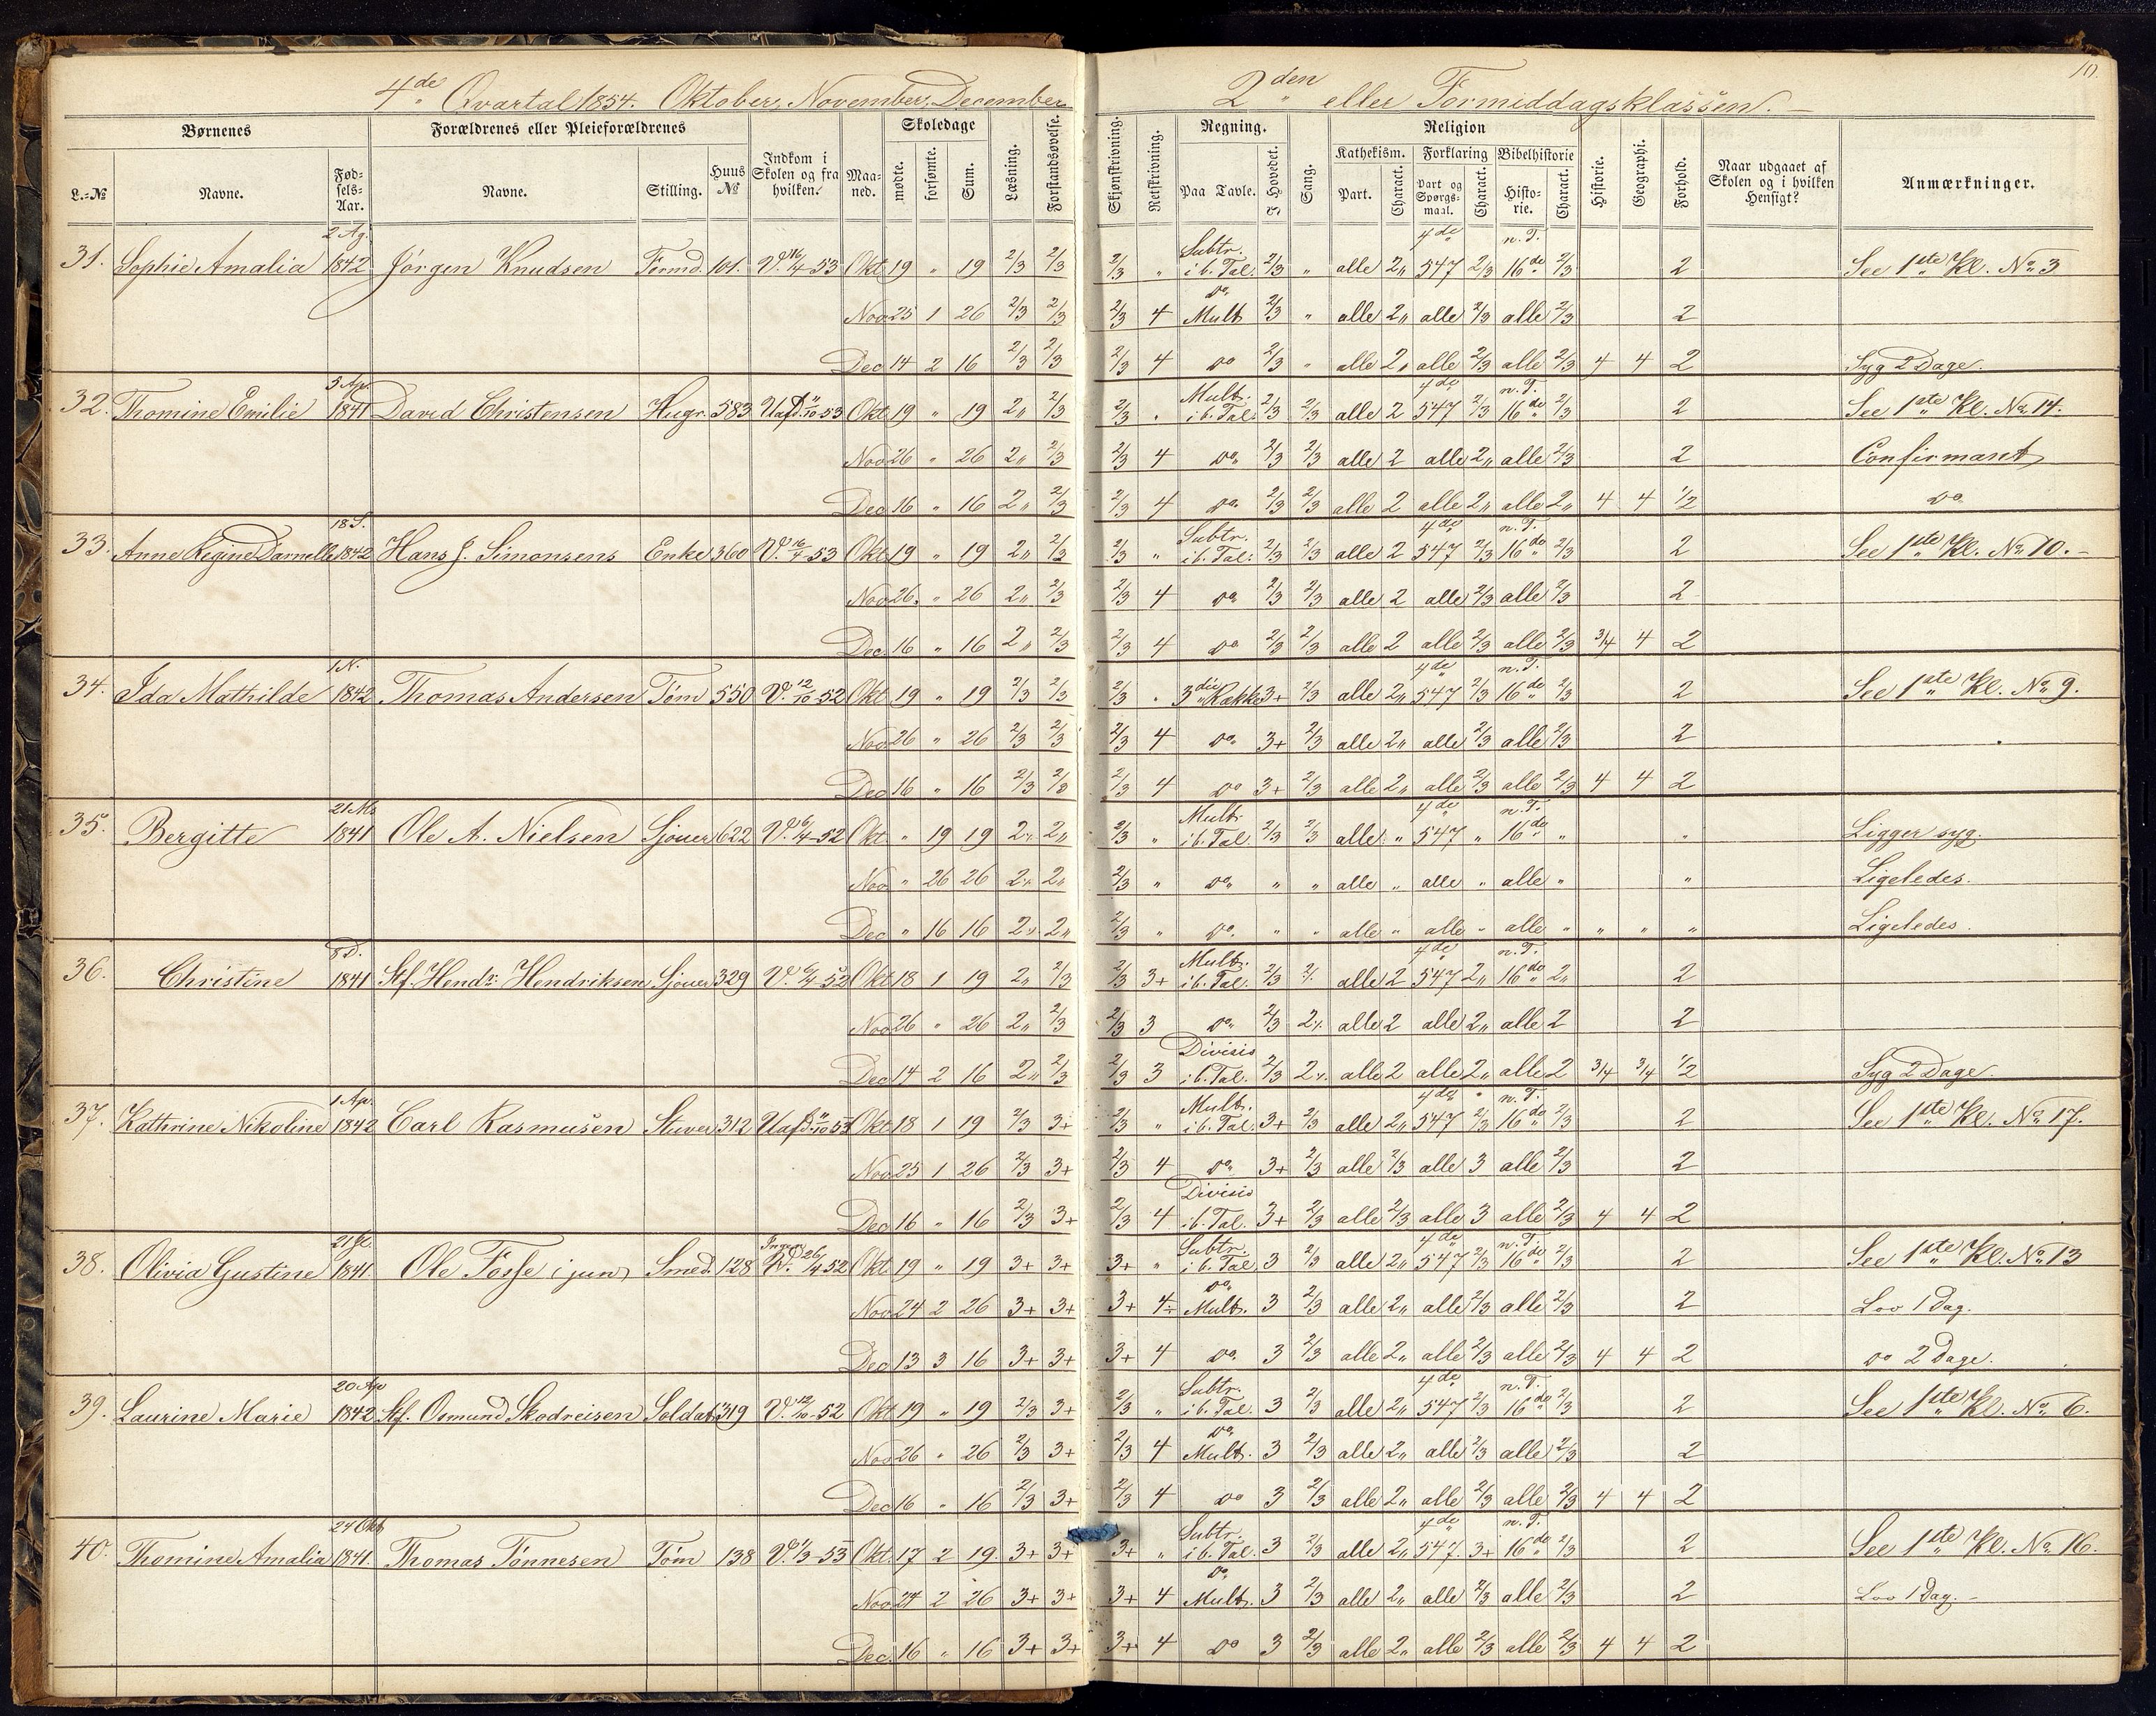 10.
4de Qvartal 1854. Oktober, November, December
2den eller Formiddagsklassen.
Børnenes
Forældrenes eller Pleieforældrenes
Indkom i Skolen og fra hvilken.
Maaned.
Skoledage
Læsning.
Forstandsøvelse.
L.-No
Navne.
Fødsels-Aar.
Navne.
Stilling.
Huus No
mødte.
forsømte.
Sum.
Skjønskrivning.
Retskrivning.
Regning.
Sang.
Religion
Historie.
Geographi.
Forhold.
Naar udgaaet af Skolen og i hvilken Hensigt?
Anmærkninger.
Paa Tavle.
I Hovedet.
Kathekism.
Forklaring
Bibelhistorie
Part.
Charact.
Part og Spørgsmaal.
Charact.
Historie.
Charact.
31. Sophie Amalia 2 Ag. 1842 Jørgen Knudsen Tømd. 101. Okt 19 " 19 2/3 2/3 2/3 " Subtr. i b. Tal. 2/3 " alle 2" 4de 547 2/3 n. T. 16de 2/3 2 See 1ste Kl. No 3
Nov 25 1 26 2/3 2/3 2/3 4 do Mult 2/3 " alle 2" alle 2/3 alle 2/3 2
Dec 14 2 16 2/3 2/3 2/3 4 do 2/3 " alle 2" alle 2/3 alle 2/3 4 4 2 Syg 2 Dage.
32. Thomine Emilie 5 Ap. 1841 David Christensen Hugr. 583 Okt 19 " 19 2" 2/3 2/3 " Mult. i b. Tal. 2/3 2/3 alle 2 4de 547 2/3 n. T. 16de 2/3 2 See 1ste Kl. No 14.
Nov 26 " 26 2" 2/3 2/3 4 do 2/3 2/3 alle 2 alle 2" alle 2/3 2 Confirmant
Dec 16 " 16 2" 2/3 2/3 4 do 2/3 2/3 alle 2 alle 2" alle 2" 4 4 1/2 do
33. Anne Regine Darnelle 18 S. 1842 Hans J. Simonsens Enke 360 V. 16/4-53 Okt 19 " 19 2" 2/3 2/3 " Subtr. i b. Tal: 2/3 2/3 alle 2 4de 547 2/3 n. T. 16de 2/3 2 See 1ste Kl. No 10.
Nov 26. " 26 2" 2/3 2/3 4 do 2/3 2/3 alle 2 alle 2/3 alle 2/3 2
Dec. 16 " 16 2" 2/3 2/3 4 do 2/3 2/3 alle 2 alle 2/3 alle 2/3 3/4 4 2
34. Ida Mathilde 1 N. 1842 Thomas Andersen Tøm 550 V. 12/10-52 Okt 19 " 19 2/3 2/3 2/3 " 3die Række 3+ 2/3 alle 2" 4de 547 2/3 n. T. 16de 2/3 2 See 1ste Kl. No 9.
Nov 26 " 26 2/3 2/3 2/3 4 do 3+ 2/3 alle 2" alle 2/3 alle 2/3 2
Dec 16 " 16 2/3 2/3 2/3 4 do 3+ 2/3 alle 2" alle 2/3 alle 2/3 4 4 2
35. Bergitte 21 Ms 1841 Ole A. Nielsen Sjouer 622 Okt " 19 19 2" 2" 2/3 " Mult. i b. Tal. 2/3 2/3 alle " 4de 547 " n. T. 16de " " Ligger syg.
Nov " 26 26 2" 2" 2/3 " do " " alle " alle " alle " " Ligeledes.
Dec " 16 16 2" 2" 2/3 " do " " alle " alle " alle " " " " Ligeledes.
36. Christine 8 D. 1841 Stf. Hends: Hendriksen Sjouer 329 Okt 18 1 19 2" 2/3 2/3 3+ Mult. i b. Tal. 2/3 alle 2 4de 547 2" n. T. 16de 2" 2
Nov 26 " 26 2" 2/3 2/3 3 do 2/3 2" alle 2 alle 2" alle 2 2
Dec 14 2 16 2" 2/3 2/3 3 Divisio i b. Tal. 2/3 2" alle 2 alle 2" alle 2 3/4 3/4 1/2 Syg 2 Dage.
37. Kathrine Nikoline 1 Ap. 1842 Carl Rasmusen Stuver 312 Okt 18 1 19 2/3 3+ 2/3 " Mult. i b. Tal. 3+ 2/3 alle 2" 4de 547 2/3 n. T. 16de 2/3 2 See 1ste Kl. No 17.
Nov 25 1 26 2/3 3+ 2/3 4 do 3+ 2/3 alle 2/3 alle 3 alle 2/3 2
Dec 16 " 16 2/3 3+ 2/3 4 Divisio i b. Tal. 3+ 2/3 alle 2/3 alle 3 alle 2/3 4 4 2
38. Olivia Gustine 1841. Ole Fosse i jun Smed. 128 Okt 19 " 19 3+ 3+ 3+ " Subtr. i b. Tal. 3 2/3 alle 2" 4de 547 2/3 n. T. 16de 2/3 2 See 1ste Kl. No 13
Nov 24 2 26 3+ 3+ 3+ 4÷ do Mult. 3 2/3 alle 2" alle 2/3 alle 2/3 2 Lov 1 Dag.
Dec 13 3 16 3+ 3+ 3+ 4 do 3 2/3 alle 2" alle 2/3 alle 2/3 4 4 2 do 2 Dage.
39. Laurine Marie 20 Ap 1842 Stf. Osmund Skodreisen Soldat 319 V. 12/10-52 Okt 19 " 19 2/3 3+ 2/3 " Subtr. i b. Tal. 3 2/3 alle 2" 4de 547 2/3 n. T. 16de 2/3 2 See 1ste Kl. No 6.
Nov 26 " 26 2/3 3+ 2/3 4 do Mult. 3 2/3 alle 2" alle 2/3 alle 2/3 2
Dec 16 " 16 2/3 3+ 2/3 4 do 3 2/3 alle 2" alle 2/3 alle 2/3 4 4 2
40. Thomine Amalia 24 Okt 1841. Thomas Tønnesen Tøm 138 Okt. 17 2 19. 3+ 3+ 3+ " Subtr. i b. Tal. 3 2/3 alle 2" 4de 547. 3+ n. T. 16de 2/3 2 See 1ste Kl. No 16.
Nov 24 2 26 3+ 3+ 3+ 4 do Mult. 3 2/3 alle 2" alle 2/3 alle 2/3 2 Lov 1 Dag.
Dec. 16 " 16 3+ 3+ 3+ 4 do 3 2/3 alle 2" alle 2/3 alle 2/3 4 4 2